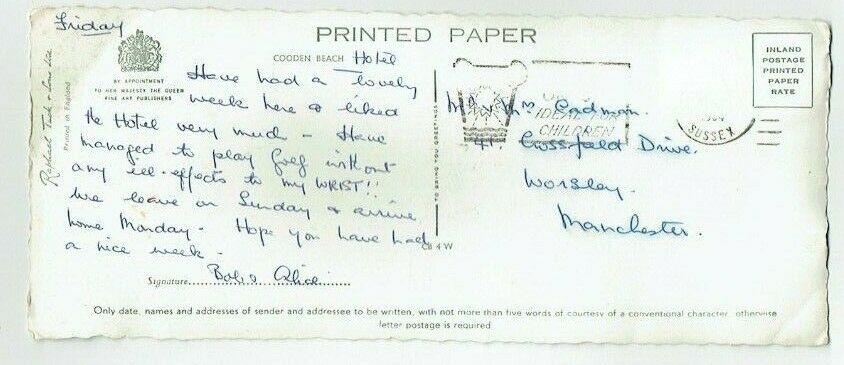 Friday
PRINTED PAPER
BY APPOINTMENT
TO HER MAJESTY THE QUEEN
FINE ART PUBLISHERS
Raphael Tuck & Sons Ltd
Printed in England
COODEN BEACH Hotel
Have had a lovely
week here & liked
the Hotel very much - Have
managed to play golf without
any ill-effects to my WRIST!!
We leave on Sunday & arrive
home Monday. Hope you have had
a nice week.
Signature Alice
TO BRING YOU GREETINGS
CB 4 W
IDEAL FOR
CHILDREN
SUSSEX
INLAND
POSTAGE
PRINTED
PAPER
RATE
Mr & Mrs Cadman.
41. Crossfield Drive.
Worsley.
Manchester.
Only date, names and addresses of sender and addressee to be written, with not more than five words of courtesy of a conventional character, otherwise
letter postage is required